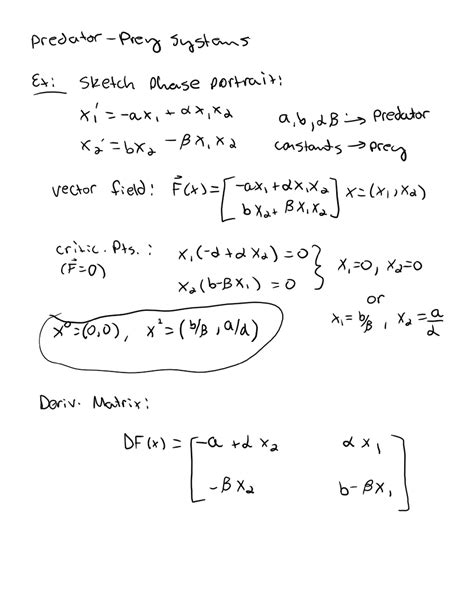 Predator - Prey Systems
Ex: Sketch phase portrait:
x₁' = -ax₁ + αx₁x₂ a, b, α β :→ Predator
x₂' = bx₂ - βx₁x₂ constants → prey
vector field: F⃗(x) = [-ax₁ + αx₁x₂ ; bx₂ + βx₁x₂] x = (x₁, x₂)
critic. Pts. : x₁(-d + αx₂) = 0 } x₁=0, x₂=0
(F⃗=0) x₂(b-βx₁) = 0
or
x⁰=(0,0), x¹=(b/β, a/α) x₁ = b/β, x₂ = a/α
Deriv. Matrix:
DF(x) = [-a + αx₂ αx₁
-βx₂ b-βx₁]